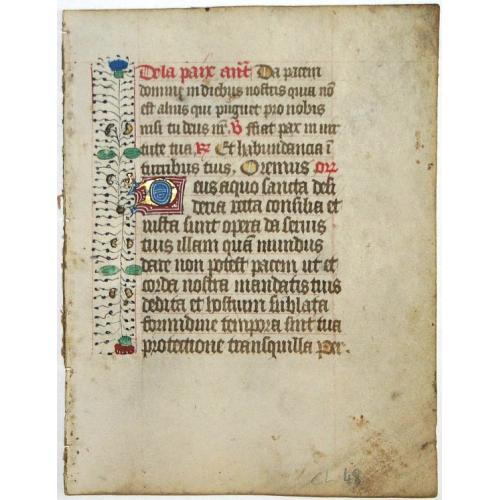 De la paix ant̄ Da pacem
domine in diebus nostris quia nō
est alius qui pugnet pro nobis
nisi tu deus nr̄. V̄ ffiat pax in uir
tute tua R̄ Et habundancia ī
turribus tuis. Oremus or̄
Deus a quo sancta desi
deria recta consilia et
iusta sunt opera da seruis
tuis illam quā mundus
dare non potest pacem ut et
corda nostra mandatis tuis
dedita et hostium sublata
formidine tempora sint tua
protectione tranquilla per.
CL 48